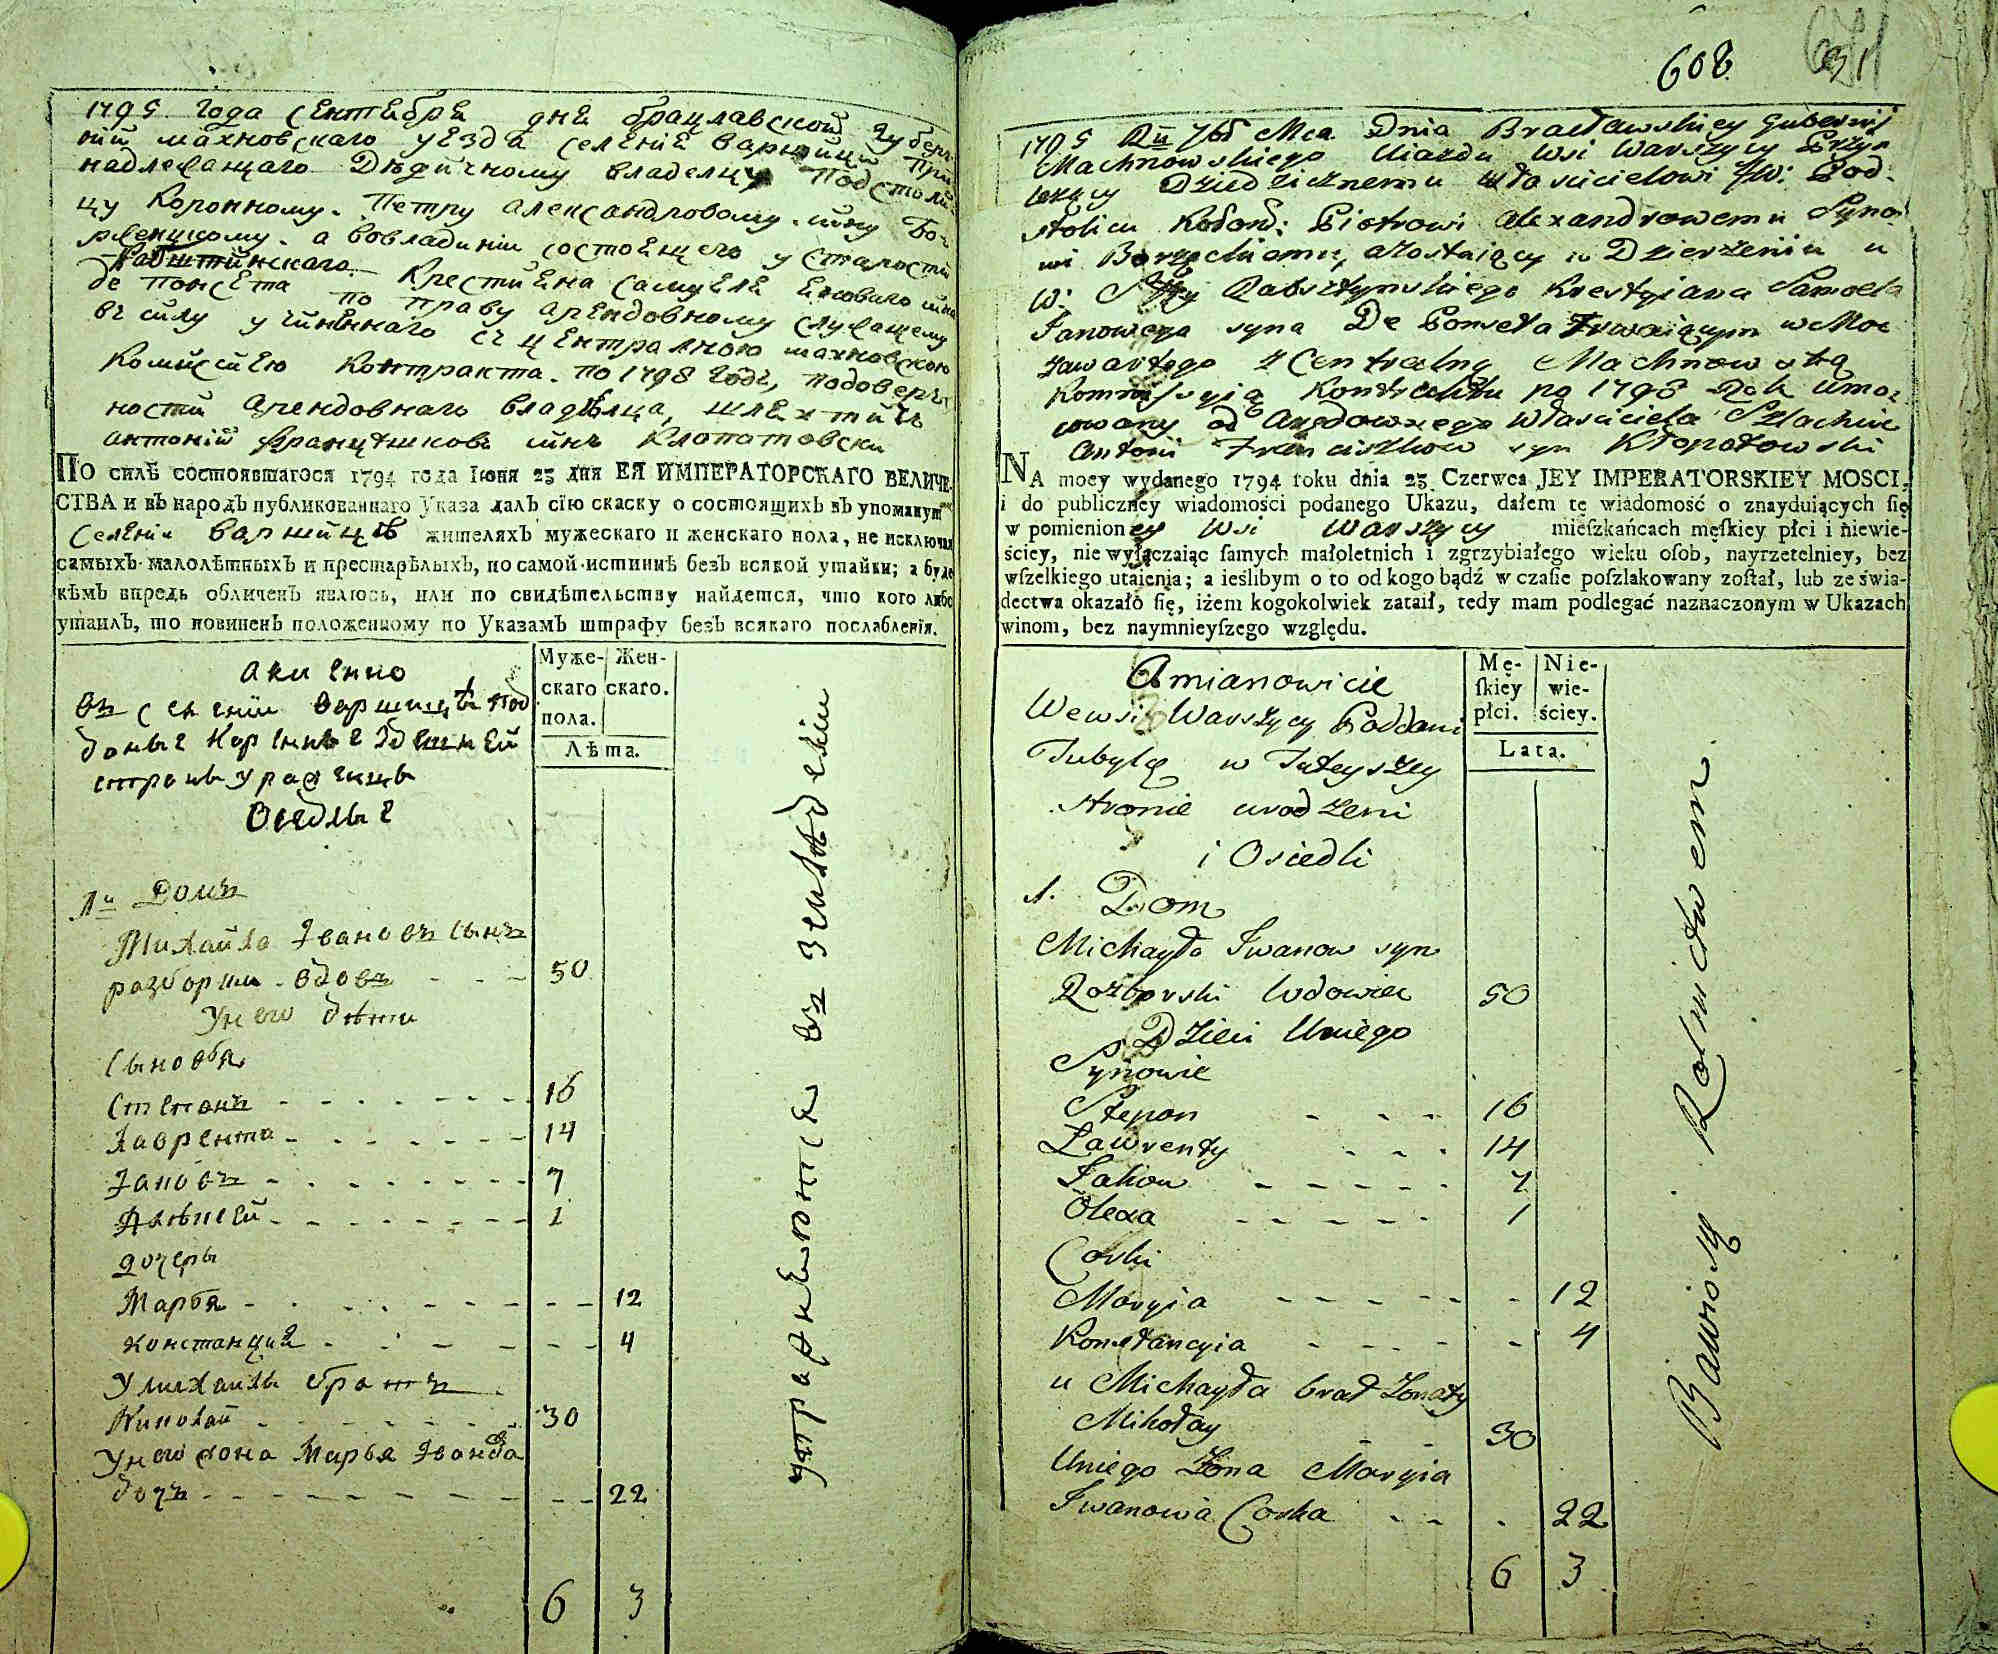 1795 года сентебре дне брацлавской губерн
нии махновскаго уезда селение варшици при
надлежащаго Дѣдичному владелцу подстоли
цу коронному. Петру александровому. сину Бо
ржецкому. а вовладении состоящего у старости
Рабштинскаго. Крестиена самуеле еноваго сина
де понсета по праву арендовному служащему
въ силу учиненнаго съ централною махновскою
комисиею контракта. по 1798 годъ, подоверен
ности арендовнаго владѣлца, шлехтичъ
антоний Францишковъ синъ Клопотовски
По силѣ состоявшагося 1794 года Iюня 23 дня ЕЯ ИМПЕРАТОРСКАГО ВЕЛИЧЕ-
СТВА и въ народъ публикованнаго Указа далъ сїю скаску о состоящихъ въ упомянут
Селении варшицѣ жителяхъ мужескаго и женскаго пола, не исключая
самыхъ малолѣтныхъ и престарѣлыхъ, по самой истиннѣ безъ всякой утайки; а буде
кѣмъ впредь обличенъ явлюсь, или по свидѣтельству найдется, что кого либо
утаилъ, то повиненъ положенному по Указамъ штрафу безъ всякаго послабленїя.
Муже- Жен-
скаго скаго.
пола.
Лѣта.
а именно
въ селении варшицѣ под
доные коренные здешней
строны урожѐнцы
Оседлые
1й Домъ
Михайла Iвановъ сынъ
разборски вдовъ - - - 50
Унего дѣти
Сыновья
Степанъ - - - - - - - 16
Лаврента - - - - - - - 14
Iаковъ - - - - - - - 7
Алѣксей - - - - - - - 1
дочеры
Марья - - - - - - - - - 12
констанция - - - - - - - 4
У михаилы братъ
Николай - - - - - - 30
У него жона Марья Iванова
дочъ - - - - - - - - - 22
6 3
упражнеются въ земледелии
608
1795 Ru 7br Mca Dnia Bracławskiey Gubernij
Machnowskiego Uiazdu Wsi Warszycy Przyn
lezący Dziedzicznemu Włascicielowi JW: Pod-
stolicu Koronn: Piotrowi Alexandrowemu Syno
wi Borzęckiemu, azostaiący w Dzierzeniu u
W: Stty Rabsztynskiego Krestyiana Samoela
Janowego syna De Ponseta Trwaiącym w Moc
zawartego z Centralną Machnowską
Kommissyią Kontraktu po 1798 Rok Umo-
cowany od Arędownego Włascieciela Szlachcic
Antoni Franciszkow syn Kłopotowski
NA mocy wydanego 1794 roku dnia 23 Czerwca JEY IMPERATORSKIEY MOSCI,
i do publiczney wiadomości podanego Ukazu, dałem tę wiadomość o znayduiących się
w pomienioney Wsi Warszycy mieſzkańcach męſkiey płci i niewie-
ściey, nie wyłączaiąc ſamych małoletnich i zgrzybiałego wieku oſob, nayrzetelniey, bez
wſzelkiego utaienia; a ieślibym o to od kogo bądź w czaſie poſzlakowany zoſtał, lub ze świa-
dectwa okazało ſię, iżem kogokolwiek zataił, tedy mam podlegać naznaczonym w Ukazach
winom, bez naymnieyſzego względu.
Mę- Nie-
ſkiey wie-
płci. ściey.
Lata.
Amianowicie
Wewsi Warszycy Poddani
Tubylcę w Tuteyszey
stronie urodzeni
i Osiedli
1. Dom
Michayło Iwanow syn
Rozborski Wdowiec 50
Dzieci Uniego
Synowie
Stepan - - - 16
Ławrenty - - - 14
Jakow - - - - - 7
Olexa - - - - - 1
Corki
Maryia - - - - - - 12
Konstancyia - - - - - 4
u Michayła brat Zonaty
Mikołay - - 30
Uniego Zona Maryia
Iwanowa Corka - - - 22
6 3
Bawio się Rolnictwem